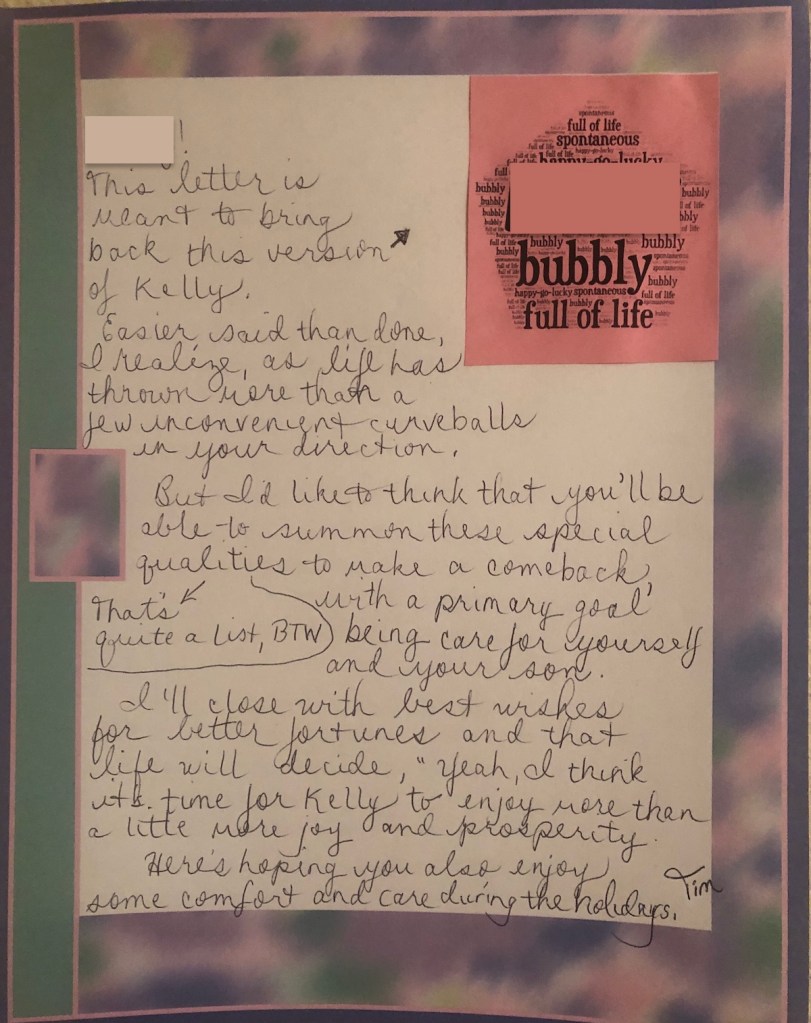 !
This letter is
meant to bring
back this version
of Kelly.
Easier said than done,
I realize, as life has
thrown more than a
few inconvenient curveballs
in your direction.
But I'd like to think that you'll be
able to summon these special
qualities to make a comeback,
with a primary goal
being care for yourself
and your son.
That's
quite a list, BTW
I'll close with best wishes
for better fortunes and that
life will decide, "Yeah, I think
it's time for Kelly to enjoy more than
a little more joy and prosperity.
Here's hoping you also enjoy
some comfort and care during the holidays.
Tim
spontaneous
full of life
spontaneous
full of life
happy-go-lucky
full
bubbly
bubbly
bubbly
bubbly
bubbly
full of life
bubbly
bubbly
bubbly
full of life
bubbly
bubbly
happy-go-lucky spontaneous
full of life
full of life